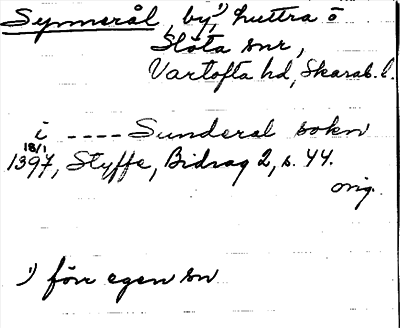 Synnerål, by,¹) Luttra o
Slöta snr,
Vartofta hd, Skarab. l.
i ---- Sunderal sokn
18/1
1397, Styffe, Bidrag 2, s. 44.
orig.
¹) förr egen sn